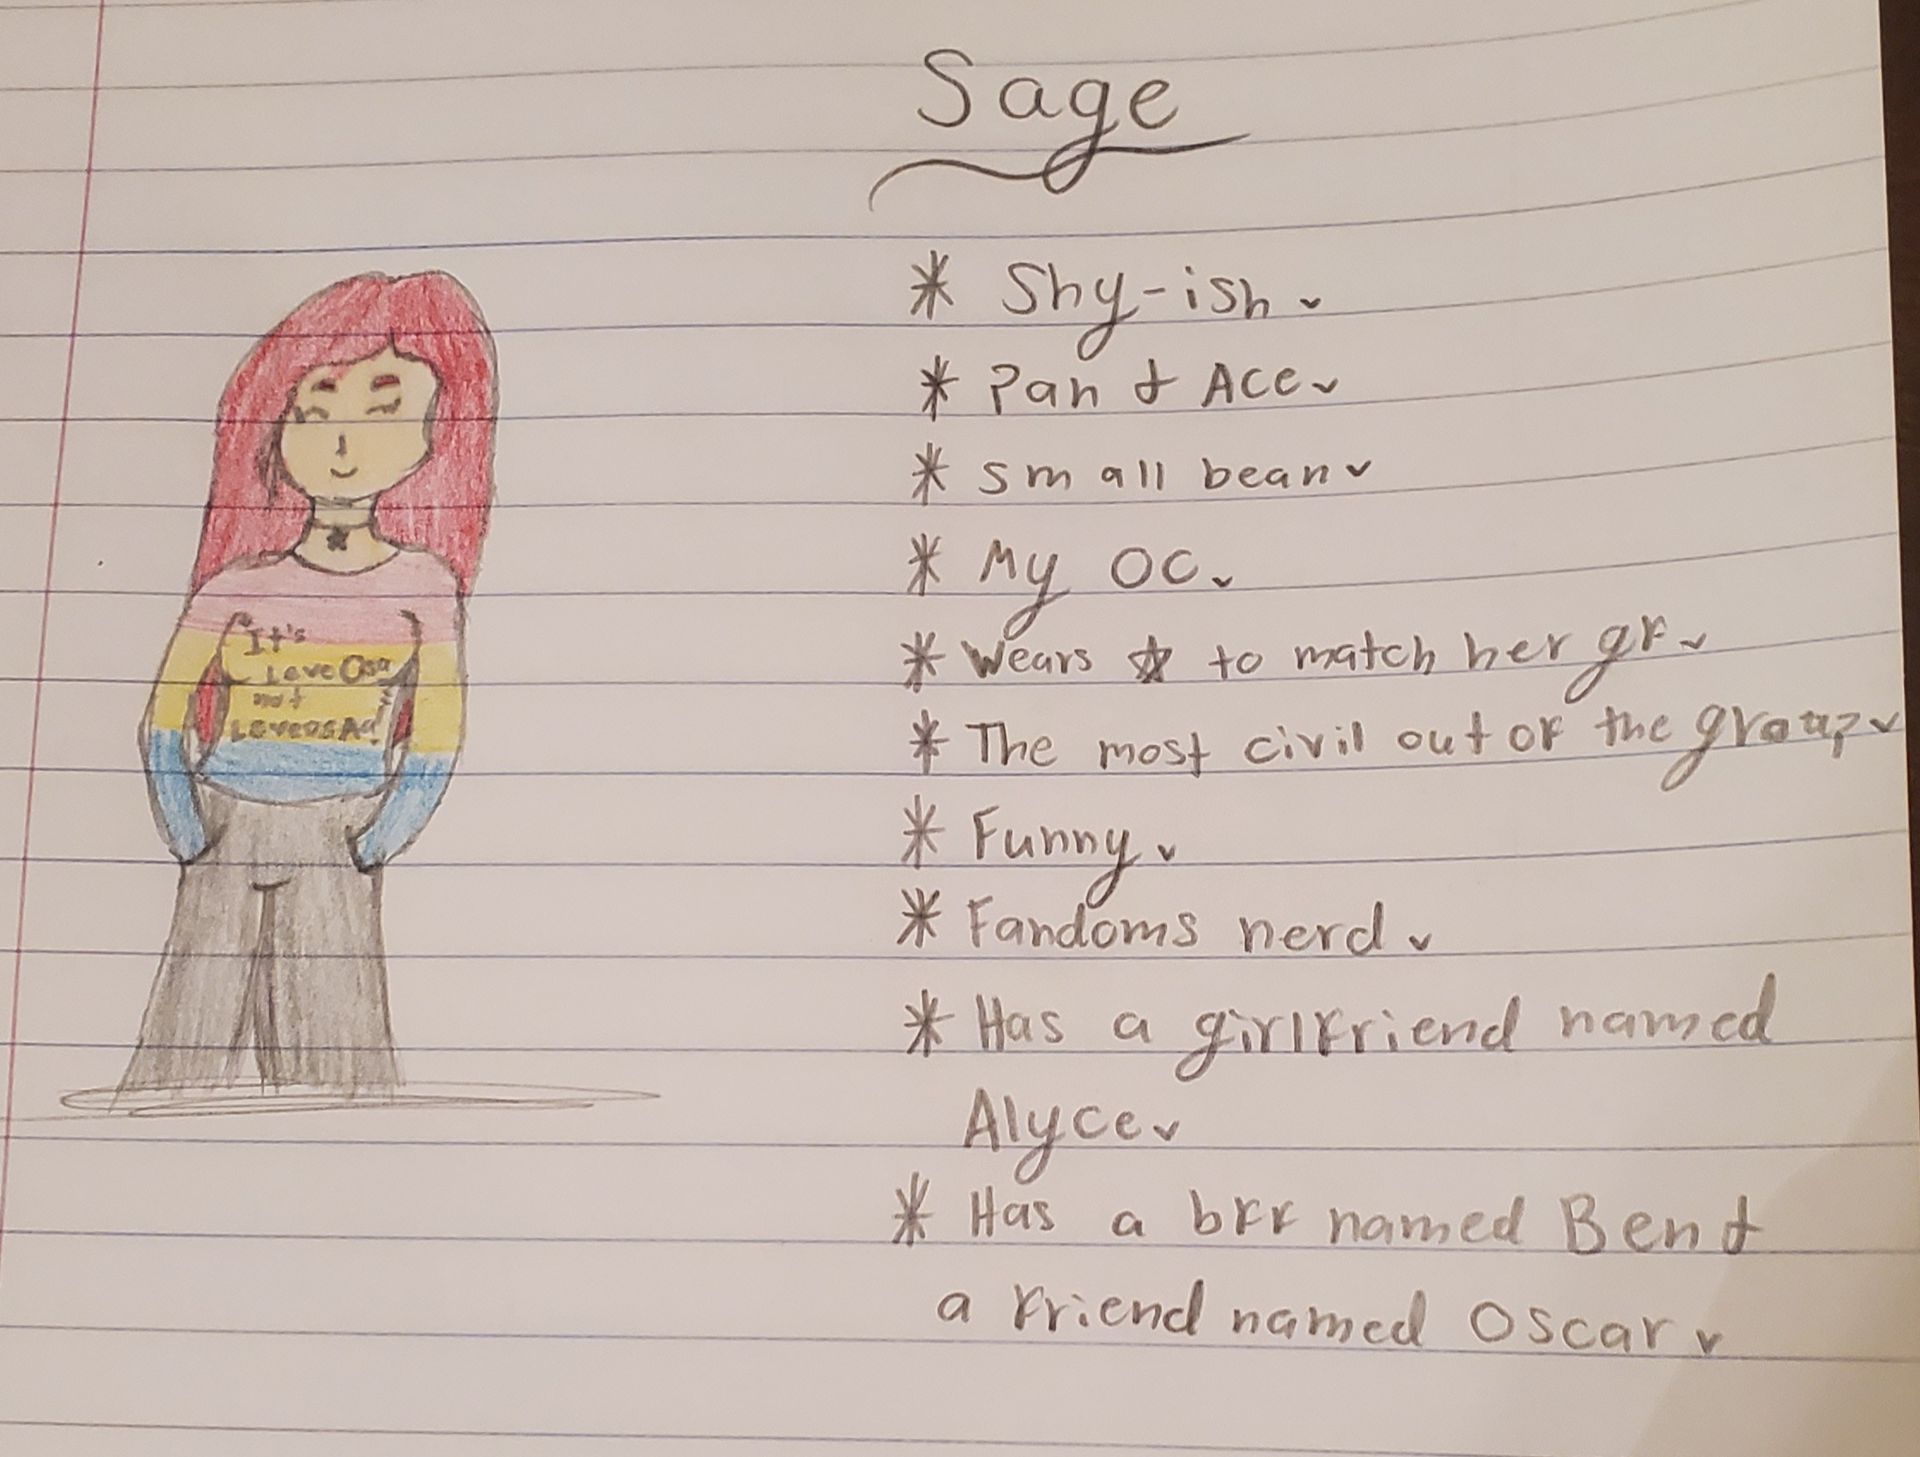 Sage
* Shy-ish
* Pan & Ace
* small bean
* My OC
* Wears ☆ to match her gf
* The most civil out of the group
* Funny
* Fandoms nerd
* Has a girlfriend named
Alyce
* Has a bff named Ben &
a friend named Oscar
"It's
Love
not